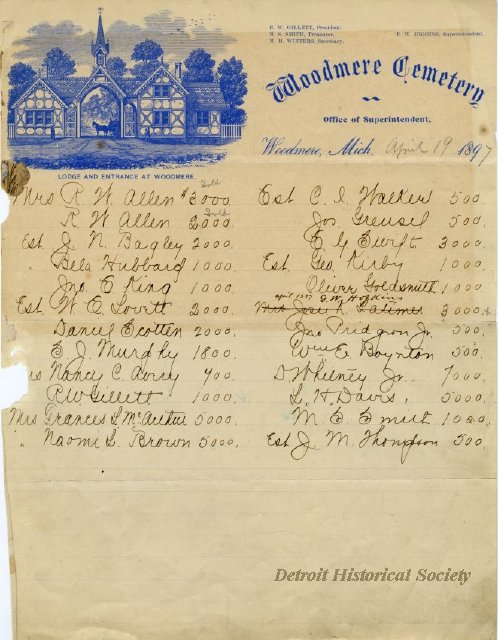 R. W. GILLETT, President.
M. S. SMITH, Treasurer.
H. H. WINTERS, Secretary.
F. W. HIGGINS, Superintendent.
Woodmere Cemetery
Office of Superintendent,
Woodmere, Mich. April 19 1897
LODGE AND ENTRANCE AT WOODMERE.
Sold
Mrs R. W. Allen $3000
Sold
R. W Allen 2000.
Est J. N. Bagley 2000.
Bela Hubbard 1000.
Jno E King 1000
Est W. E Lovett 2000.
Daniel Scotten 2000.
E. J. Murphy 1800.
Nancy C. Avery 900.
R W Gillett 1000.
Mrs Frances L McArthur 5000.
" Naomi L. Brown 5000.
Est C. I. Walker 500.
Jos. Greusel 500.
E. Y. Swift. 3000.
Est Geo. Kirby 1000.
Oliver Goldsmith 1000.
april 1897 Hopkins
Mrs Latimer 3000.
Jno Pridgeon Jr. 500.
Wm E. Boynton 500.
D Whitney Jr. 7000.
L. H. Davis. 5000.
M. E. Smith 1000.
Est J. M. Thompson 500.
Detroit Historical Society